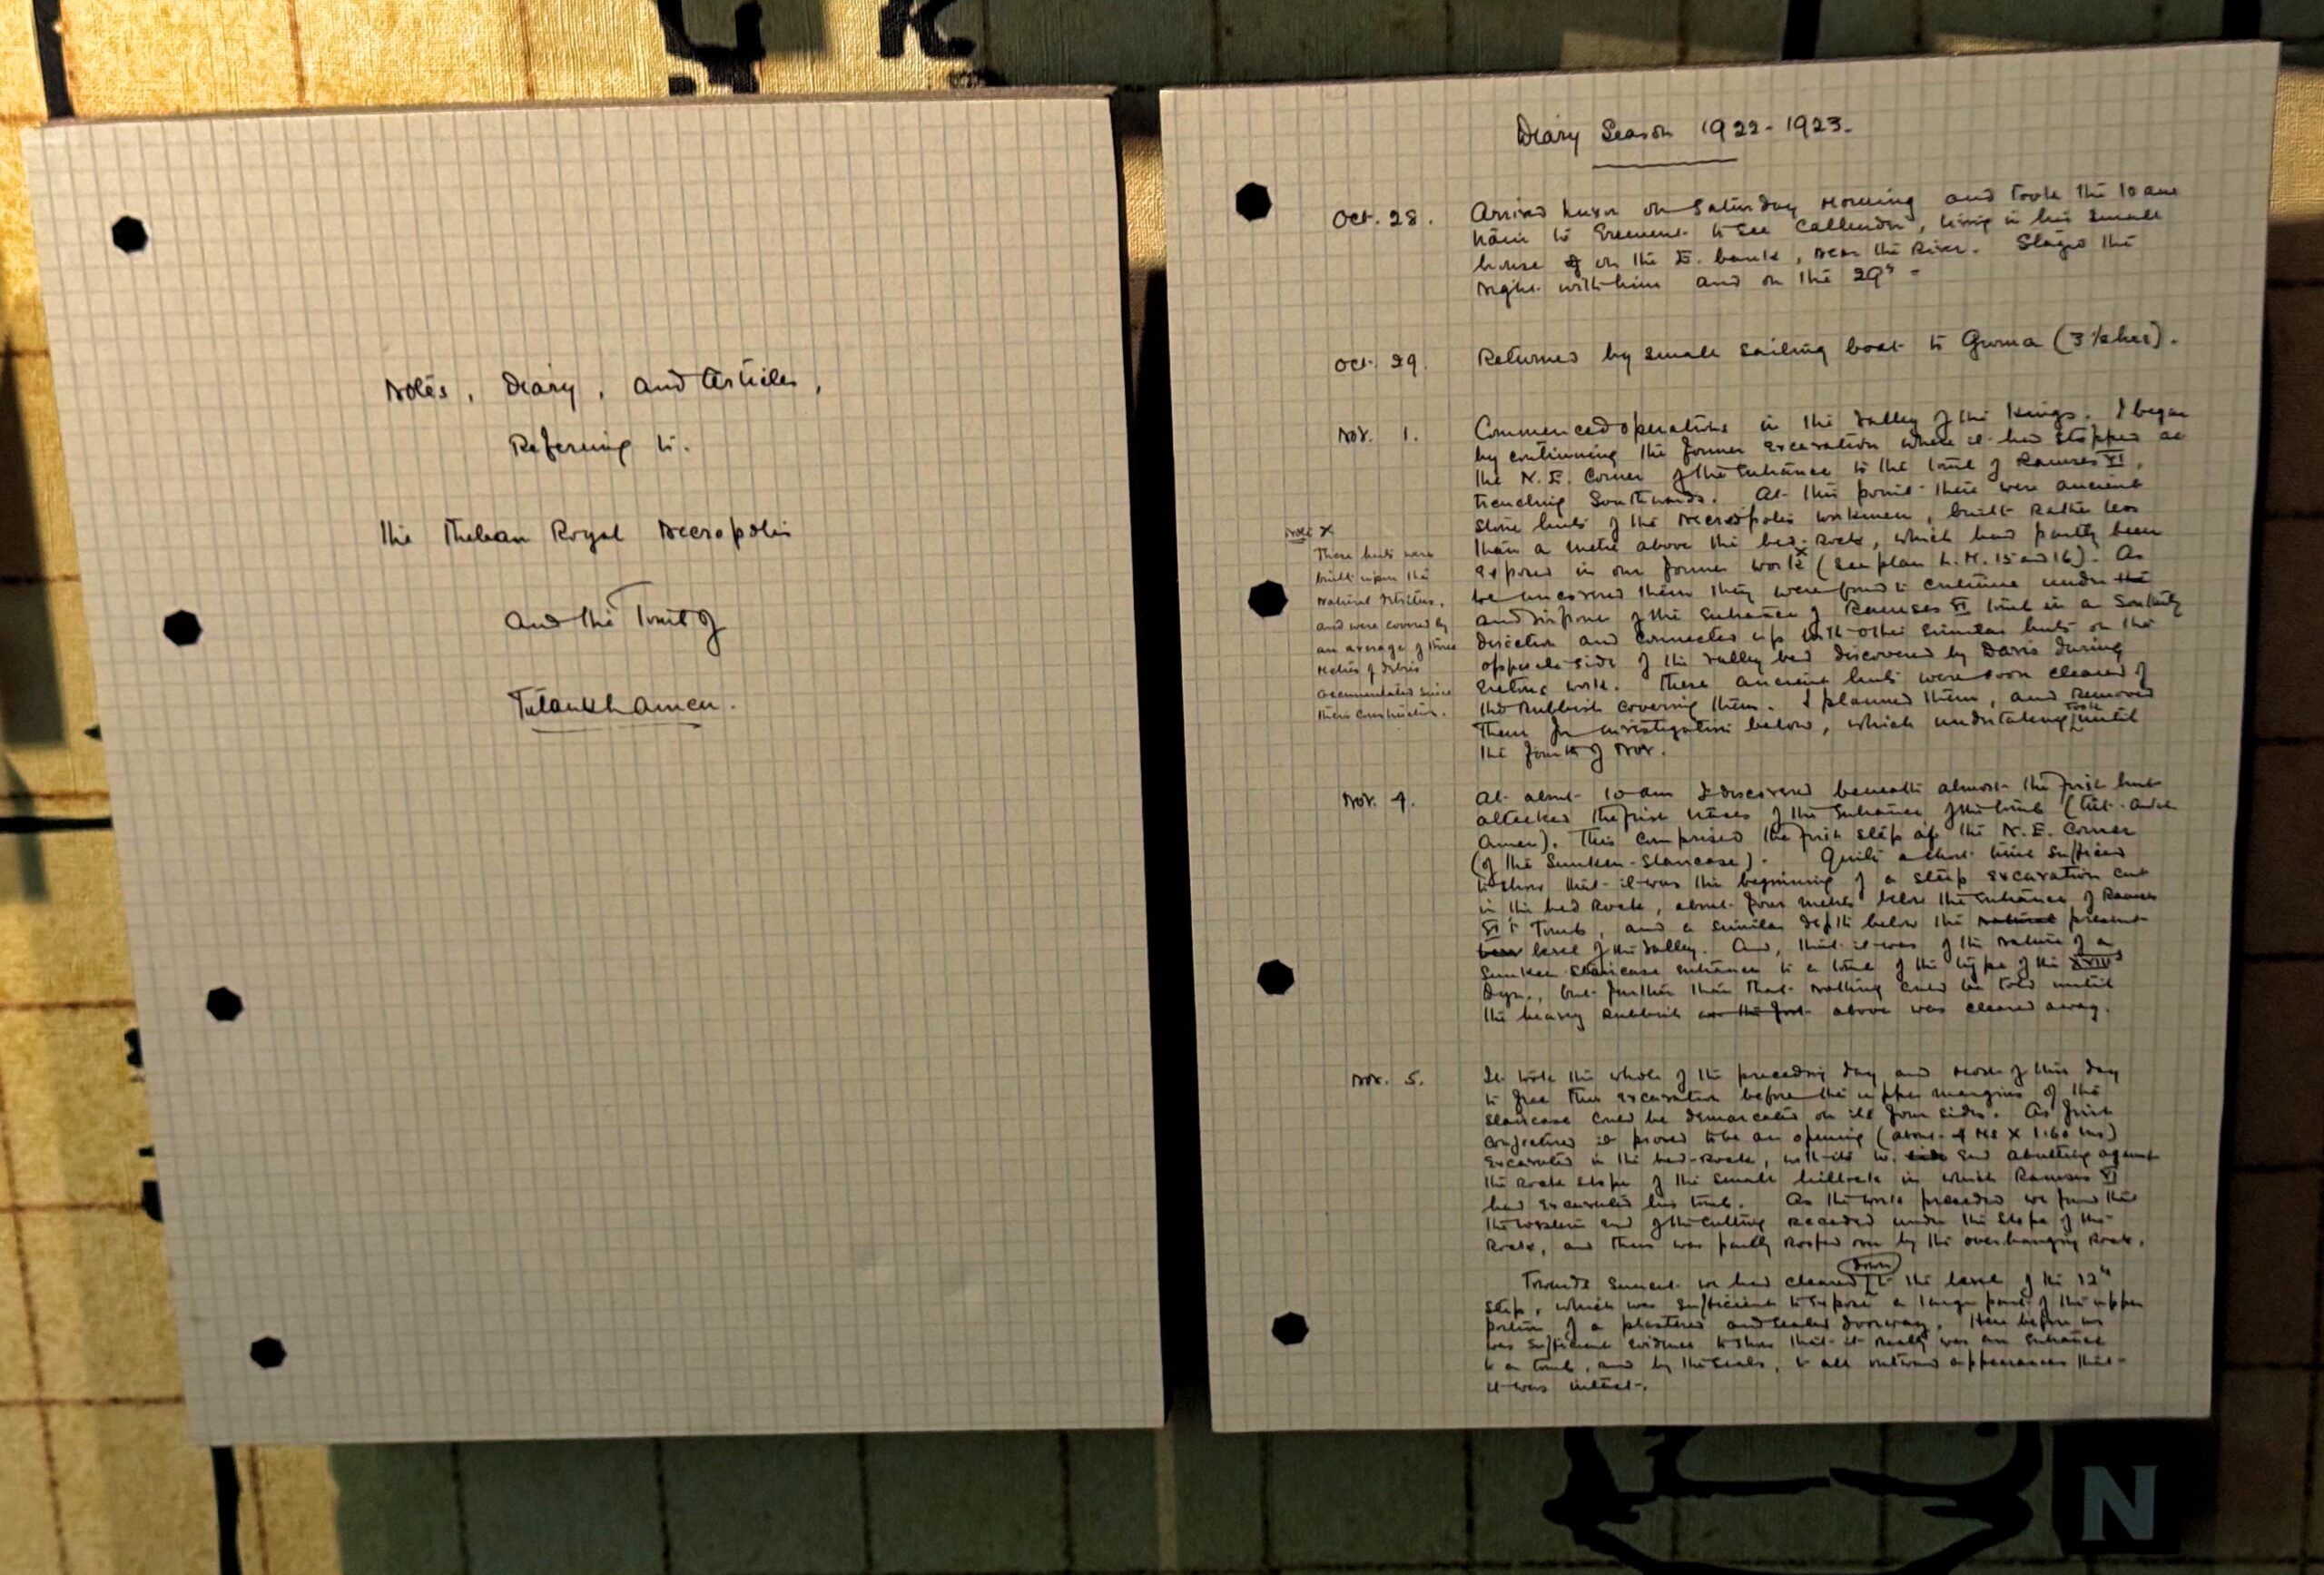 Notes, Diary, and Articles,
Refering to.
the Theban Royal Necropolis
and the Tomb of
Tutankhamen.
Diary Season 1922-1923.
Oct. 28. Arrived Luxor on Saturday morning and took the 10 am
train to Ermment to see Callender, living in his small
house on the E. bank, near the River. Stayed the
night with him and on the 29th -
Oct. 29. Returned by small sailing boat to Gurna (3½ hrs).
Nov. 1. Commenced operations in the Valley of the Kings. I began
by continuing the former excavation where it had stopped at
the N.E. corner of the entrance to the tomb of Ramses VI,
trenching Southwards. At this point there were ancient
stone huts of the Necropolis workmen, built rather less
than a metre above the bed-rock, which had partly been
exposed in our former work x (see plan L.M. 15 and 16). As
we uncovered them they were found to continue under the
and in front of the entrance of Ramses VI tomb in a Southerly
direction and connected up with other similar huts on the
opposite side of the Valley bed discovered by Davis during
work. These ancient huts were soon cleared of
the rubbish covering them. I planned them, and removed
them for investigation below, which undertaking took until
the fourth of Nov.
Note X
These huts were
built upon the
natural detritus,
and were covered by
an average of three
metres of debris
accumulated since
their construction.
Nov. 4. At about 10 am I discovered beneath almost the first hut
attacked the first traces of the entrance of the tomb (Tut.ankh.
Amen). This comprised the first step of the N.E. corner
(of the sunken-staircase). Quite a short time sufficed
to show that it was the beginning of a steep excavation cut
in the bed rock, about four metres below the entrance of Ramses
VI's Tomb, and a similar depth below the natural present
level of the valley. And, that it was of the nature of a
sunken staircase entrance to a tomb of the type of the XVIIIth
Dyn., but further than that nothing could be told until
the heavy rubbish above was cleared away.
Nov. 5. It took the whole of the preceding day and most of this day
to free this excavation before the upper margins of the
staircase could be demarcated on its four sides. As first
conjectured it proved to be an opening (about 4 Ms x 1.60 ms)
excavated in the bed-rock, with its W. side end abutting against
the rock slope of the small hillock in which Ramses VI
had excavated his tomb. As the work proceeded we found that
the western end of the cutting receded under the slope of the
rock, and thus was partly roofed over by the overhanging rock.
Towards sunset we had cleared down to the level of the 12th
step, which was sufficient to expose a large part of the upper
portion of a plastered and sealed doorway. Here before us
was sufficient evidence to show that it really was an entrance
to a tomb, and by the seals, to all outward appearances that
it was intact.
N